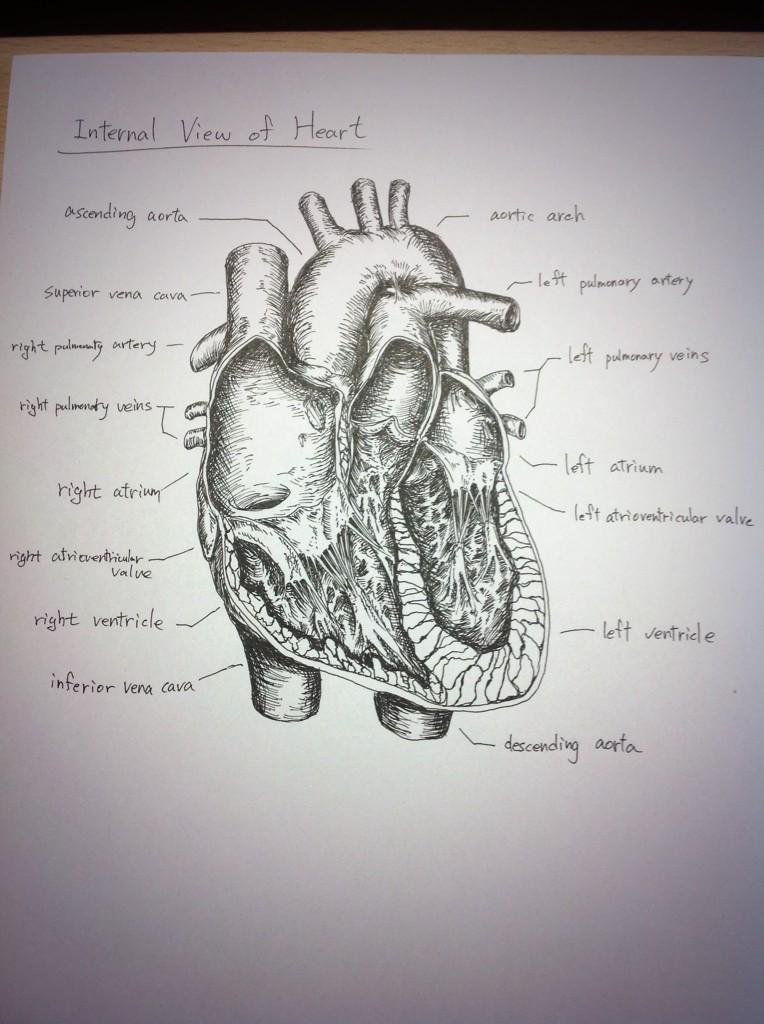 Internal View of Heart
ascending aorta
aortic arch
superior vena cava
left pulmonary artery
right pulmonary artery
left pulmonary veins
right pulmonary veins
left atrium
right atrium
left atrioventricular valve
right atrioventricular
valve
right ventricle
left ventricle
inferior vena cava
descending aorta